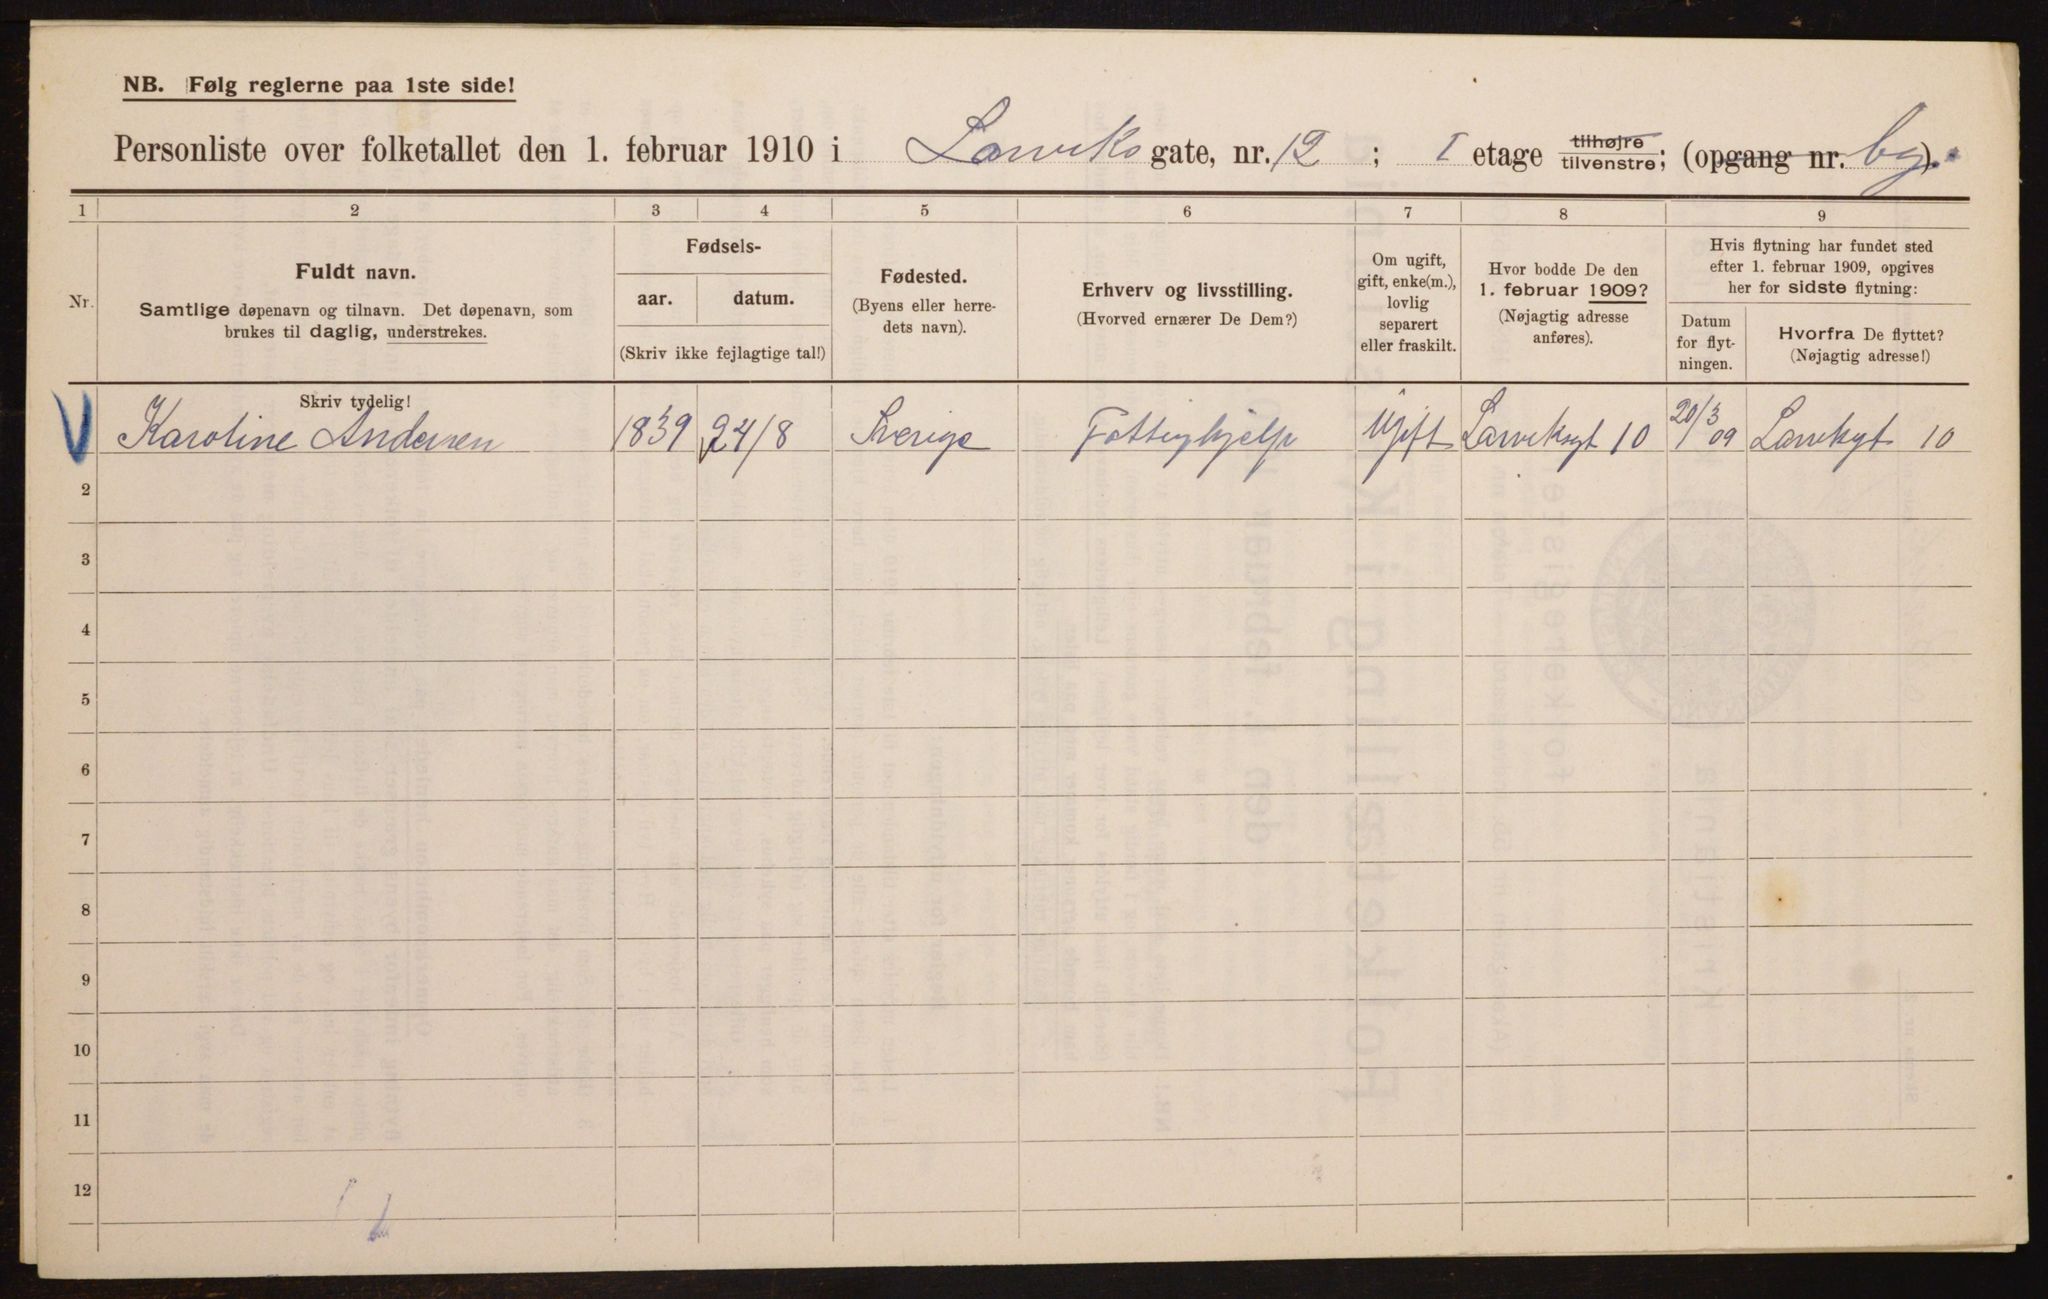 NB. Følg reglerne paa 1ste side!
Personliste over folketallet den 1. februar 1910 i Larviks gate, nr. 12; I etage tilhøjre tilvenstre; (opgang nr. bg.).
1 2 3 4 5 6 7 8 9
Nr.
Fuldt navn.
Samtlige døpenavn og tilnavn. Det døpenavn, som
brukes til daglig, understrekes.
Fødsels-
aar. datum.
(Skriv ikke fejlagtige tal!)
Fødested.
(Byens eller herre-
dets navn).
Erhverv og livsstilling.
(Hvorved ernærer De Dem?)
Om ugift,
gift, enke(m.),
lovlig
separert
eller fraskilt.
Hvor bodde De den
1. februar 1909?
(Nøjagtig adresse
anføres).
Hvis flytning har fundet sted
efter 1. februar 1909, opgives
her for sidste flytning:
Datum
for flyt-
ningen.
Hvorfra De flyttet?
(Nøjagtig adresse!)
Skriv tydelig!
Karoline Andersen 1839 24/8 Sverige Fattighjelp Ugift Larviksgt 10 20/3 09 Larvikgt 10
2
3
4
5
6
7
8
9
10
11
12